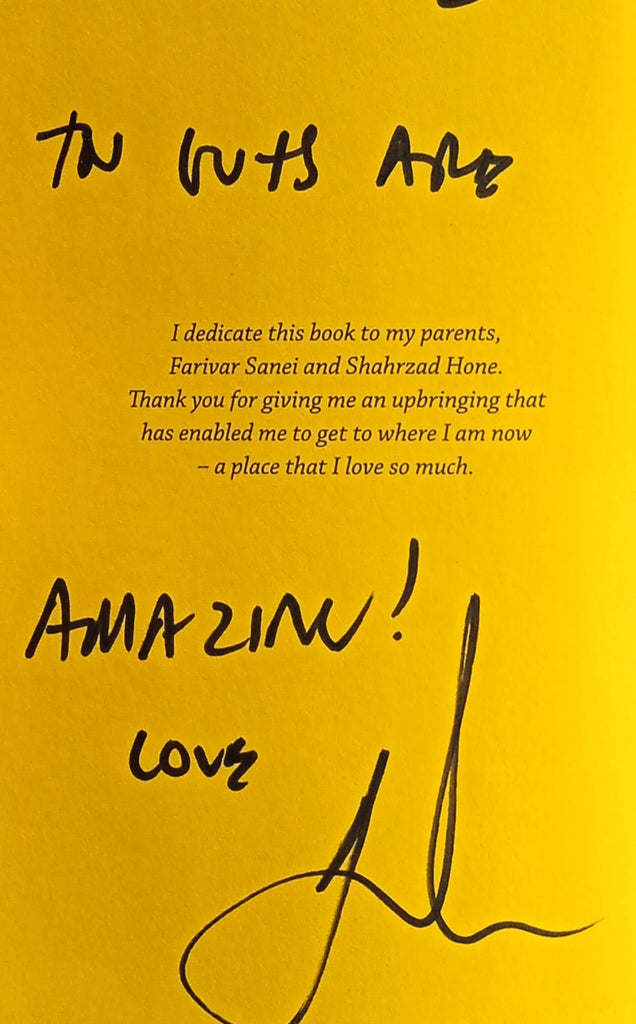 ARE
I dedicate this book to my parents,
Farivar Sanei and Shahrzad Hone.
Thank you for giving me an upbringing that
has enabled me to get to where I am now
– a place that I love so much.
AMAZING!
LOVE